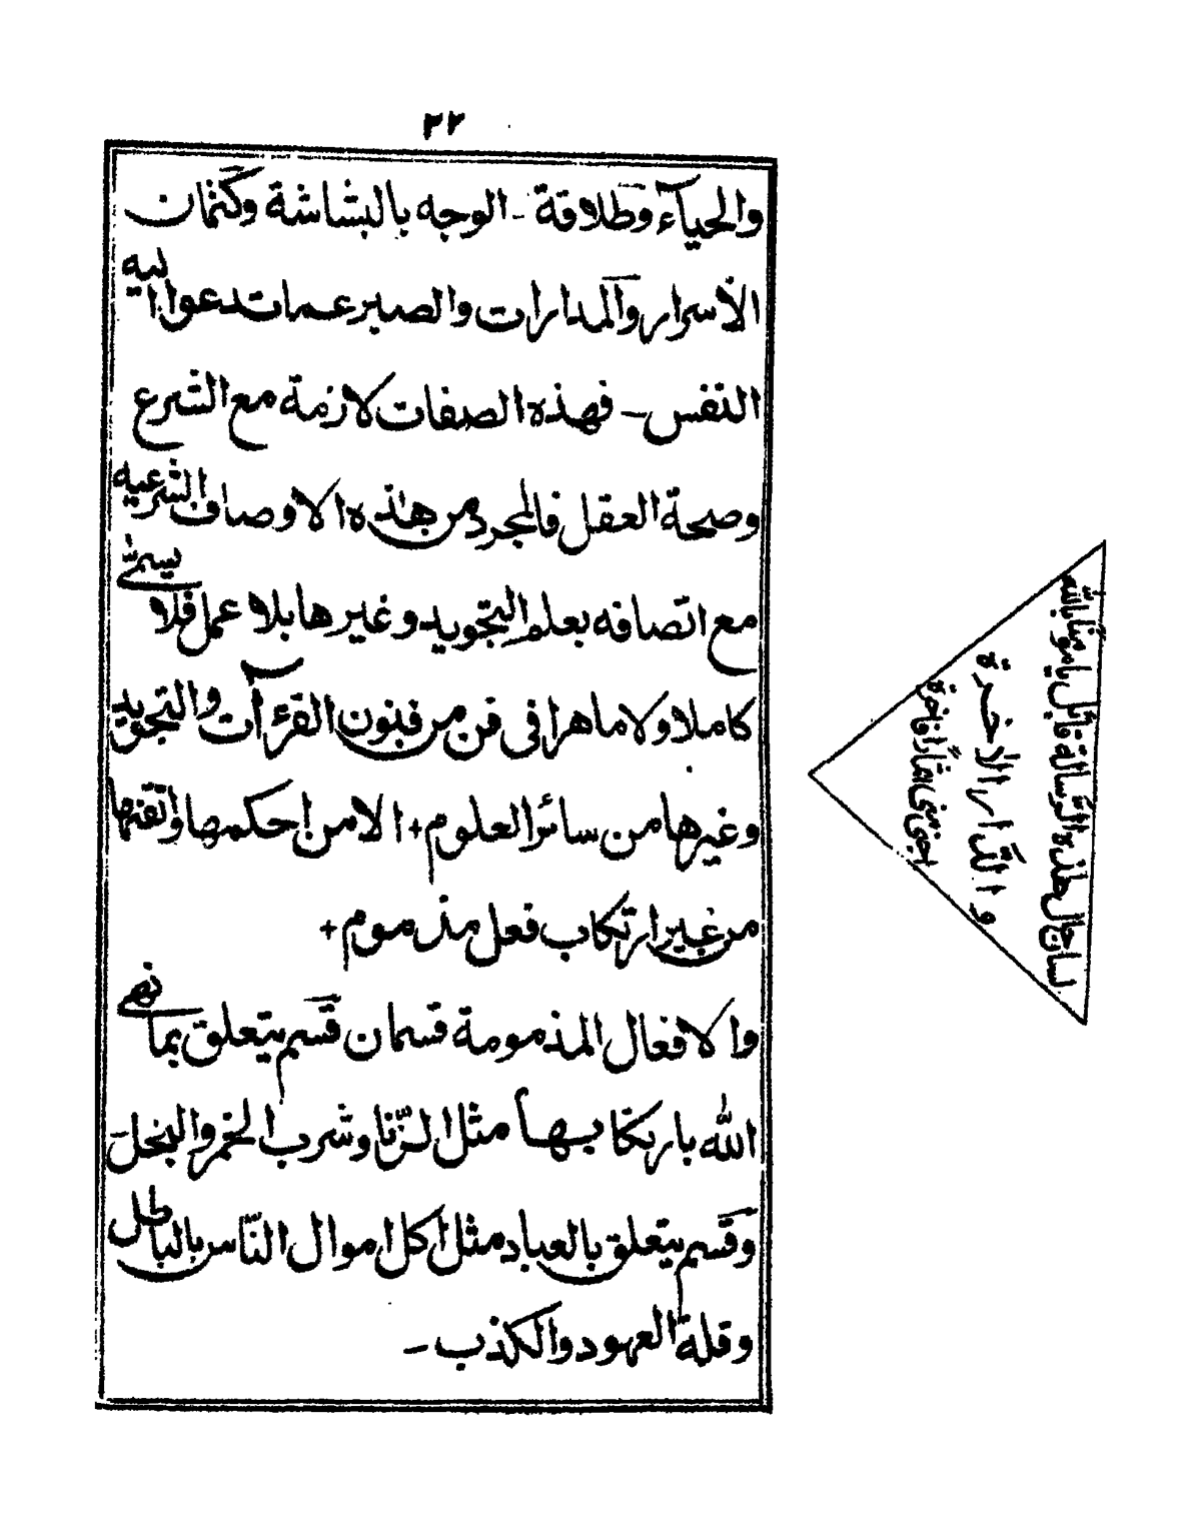 ٢٢
والحيآء وطلاقة - الوجه بالبشاشة وكتمان
الاسرار والمدارات والصبر عمات دعوا اليه
النفس - فهذه الصفات لازمة مع الشرع
وصحة العقل فالمجرد من هذه الاوصاف الشرعيه
مع اتصافه بعلم التجويد وغيرها بلا عمل فلا يسمى
كاملا ولا ماهرا فى فن من فنون القرءآت والتجويد
وغيرها من سائر العلوم + الا من احكمها واتقنها
من غير ارتكاب فعل مذموم +
والافعال المذمومة قسمان قسم يتعلق بما نهى
الله بارتكابها مثل الزّنا وشرب الخمر والبخل
وقسم يتعلق بالعباد مثل اكل اموال النّاس بالباطل
وقلة العهود والكذب -
لسان حال هذه الرّسالة قائل يا مومنا بالله
والدّار الاخرة